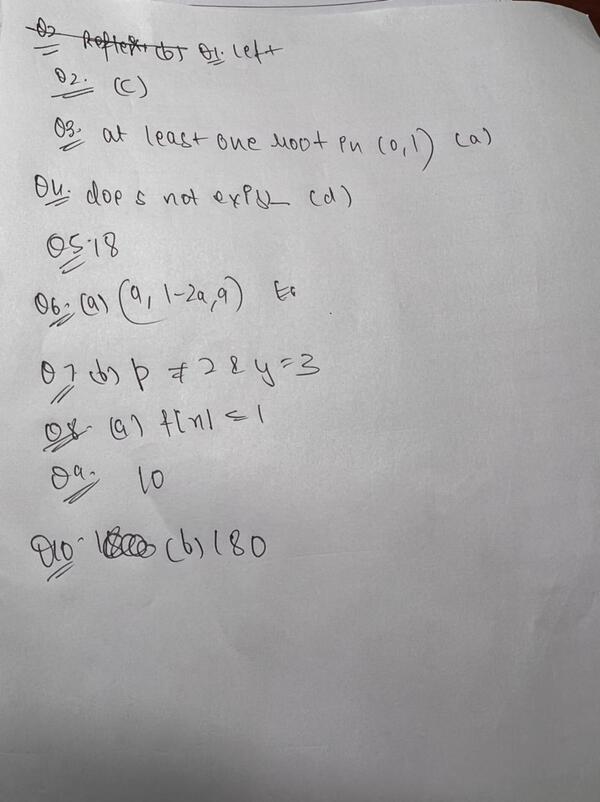 Q1. left
Q2. (c)
Q3. at least one root in (0,1) (a)
Q4. does not exist (d)
Q5. 18
Q6. (a) (a, 1-2a, a)
Q7 (b) p ≠ 2 & y = 3
Q8. (a) f(x) = 1
Q9. 10
Q10. (b) 180